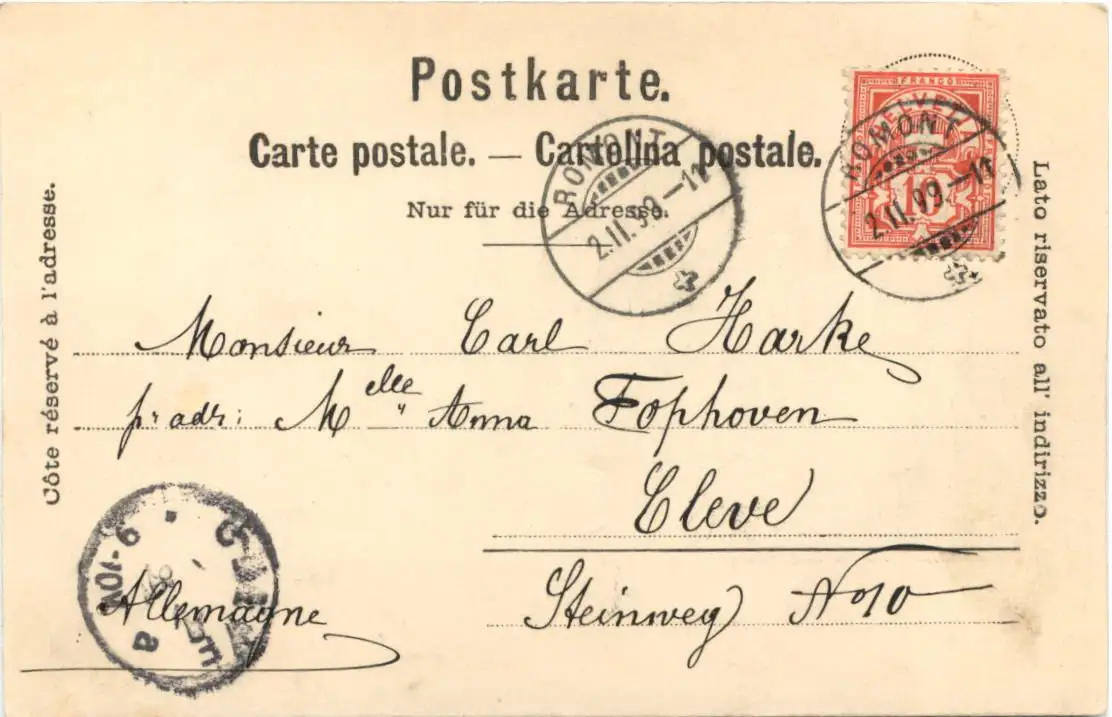 Postkarte.
Carte postale. — Cartolina postale.
Nur für die Adresse.
Côte réservé à l'adresse.
Lato riservato all' indirizzo.
FRANCO
HELVETIA
10
ROMONT
2.II.99.-11
ROMONT
2.II.99.-11
Monsieur Carl Harke
pr adr: Mlle Anna Fophoven
Cleve
Steinweg No 10
Allemagne
9-10V
a